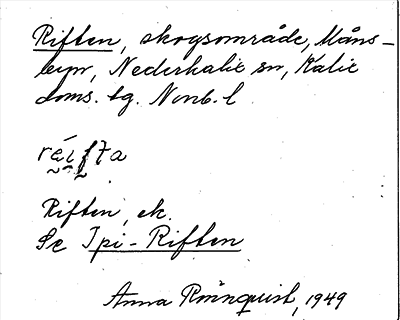 Riften, skogsområde, Måns-
byn, Nederkalix sn, Kalix
doms. tg. Nonb. l
réifta
Riften, ek.
Se Ipi-Riften
Anna Rönnquist, 1949